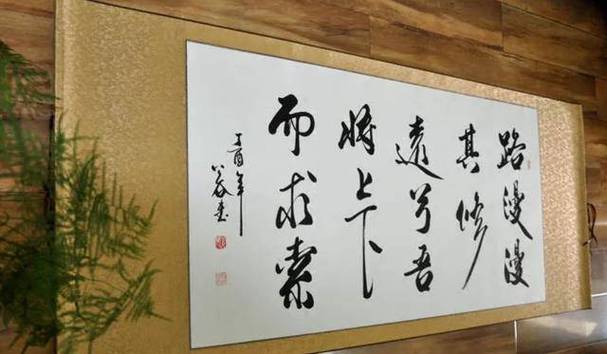 路漫漫
其修
遠兮吾
将上下
而求索
丁酉年